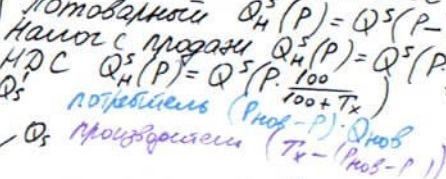 потоварный Q_H^S(P) = Q^S(P-
налог с продажи Q_H^S(P) = Q^S(P·
НДС Q_H^S(P) = Q^S(P · 100/(100+Tx))
Qs потребитель (Pнов-P)·Qнов
Qs производители (Tx-(Pнов-P))